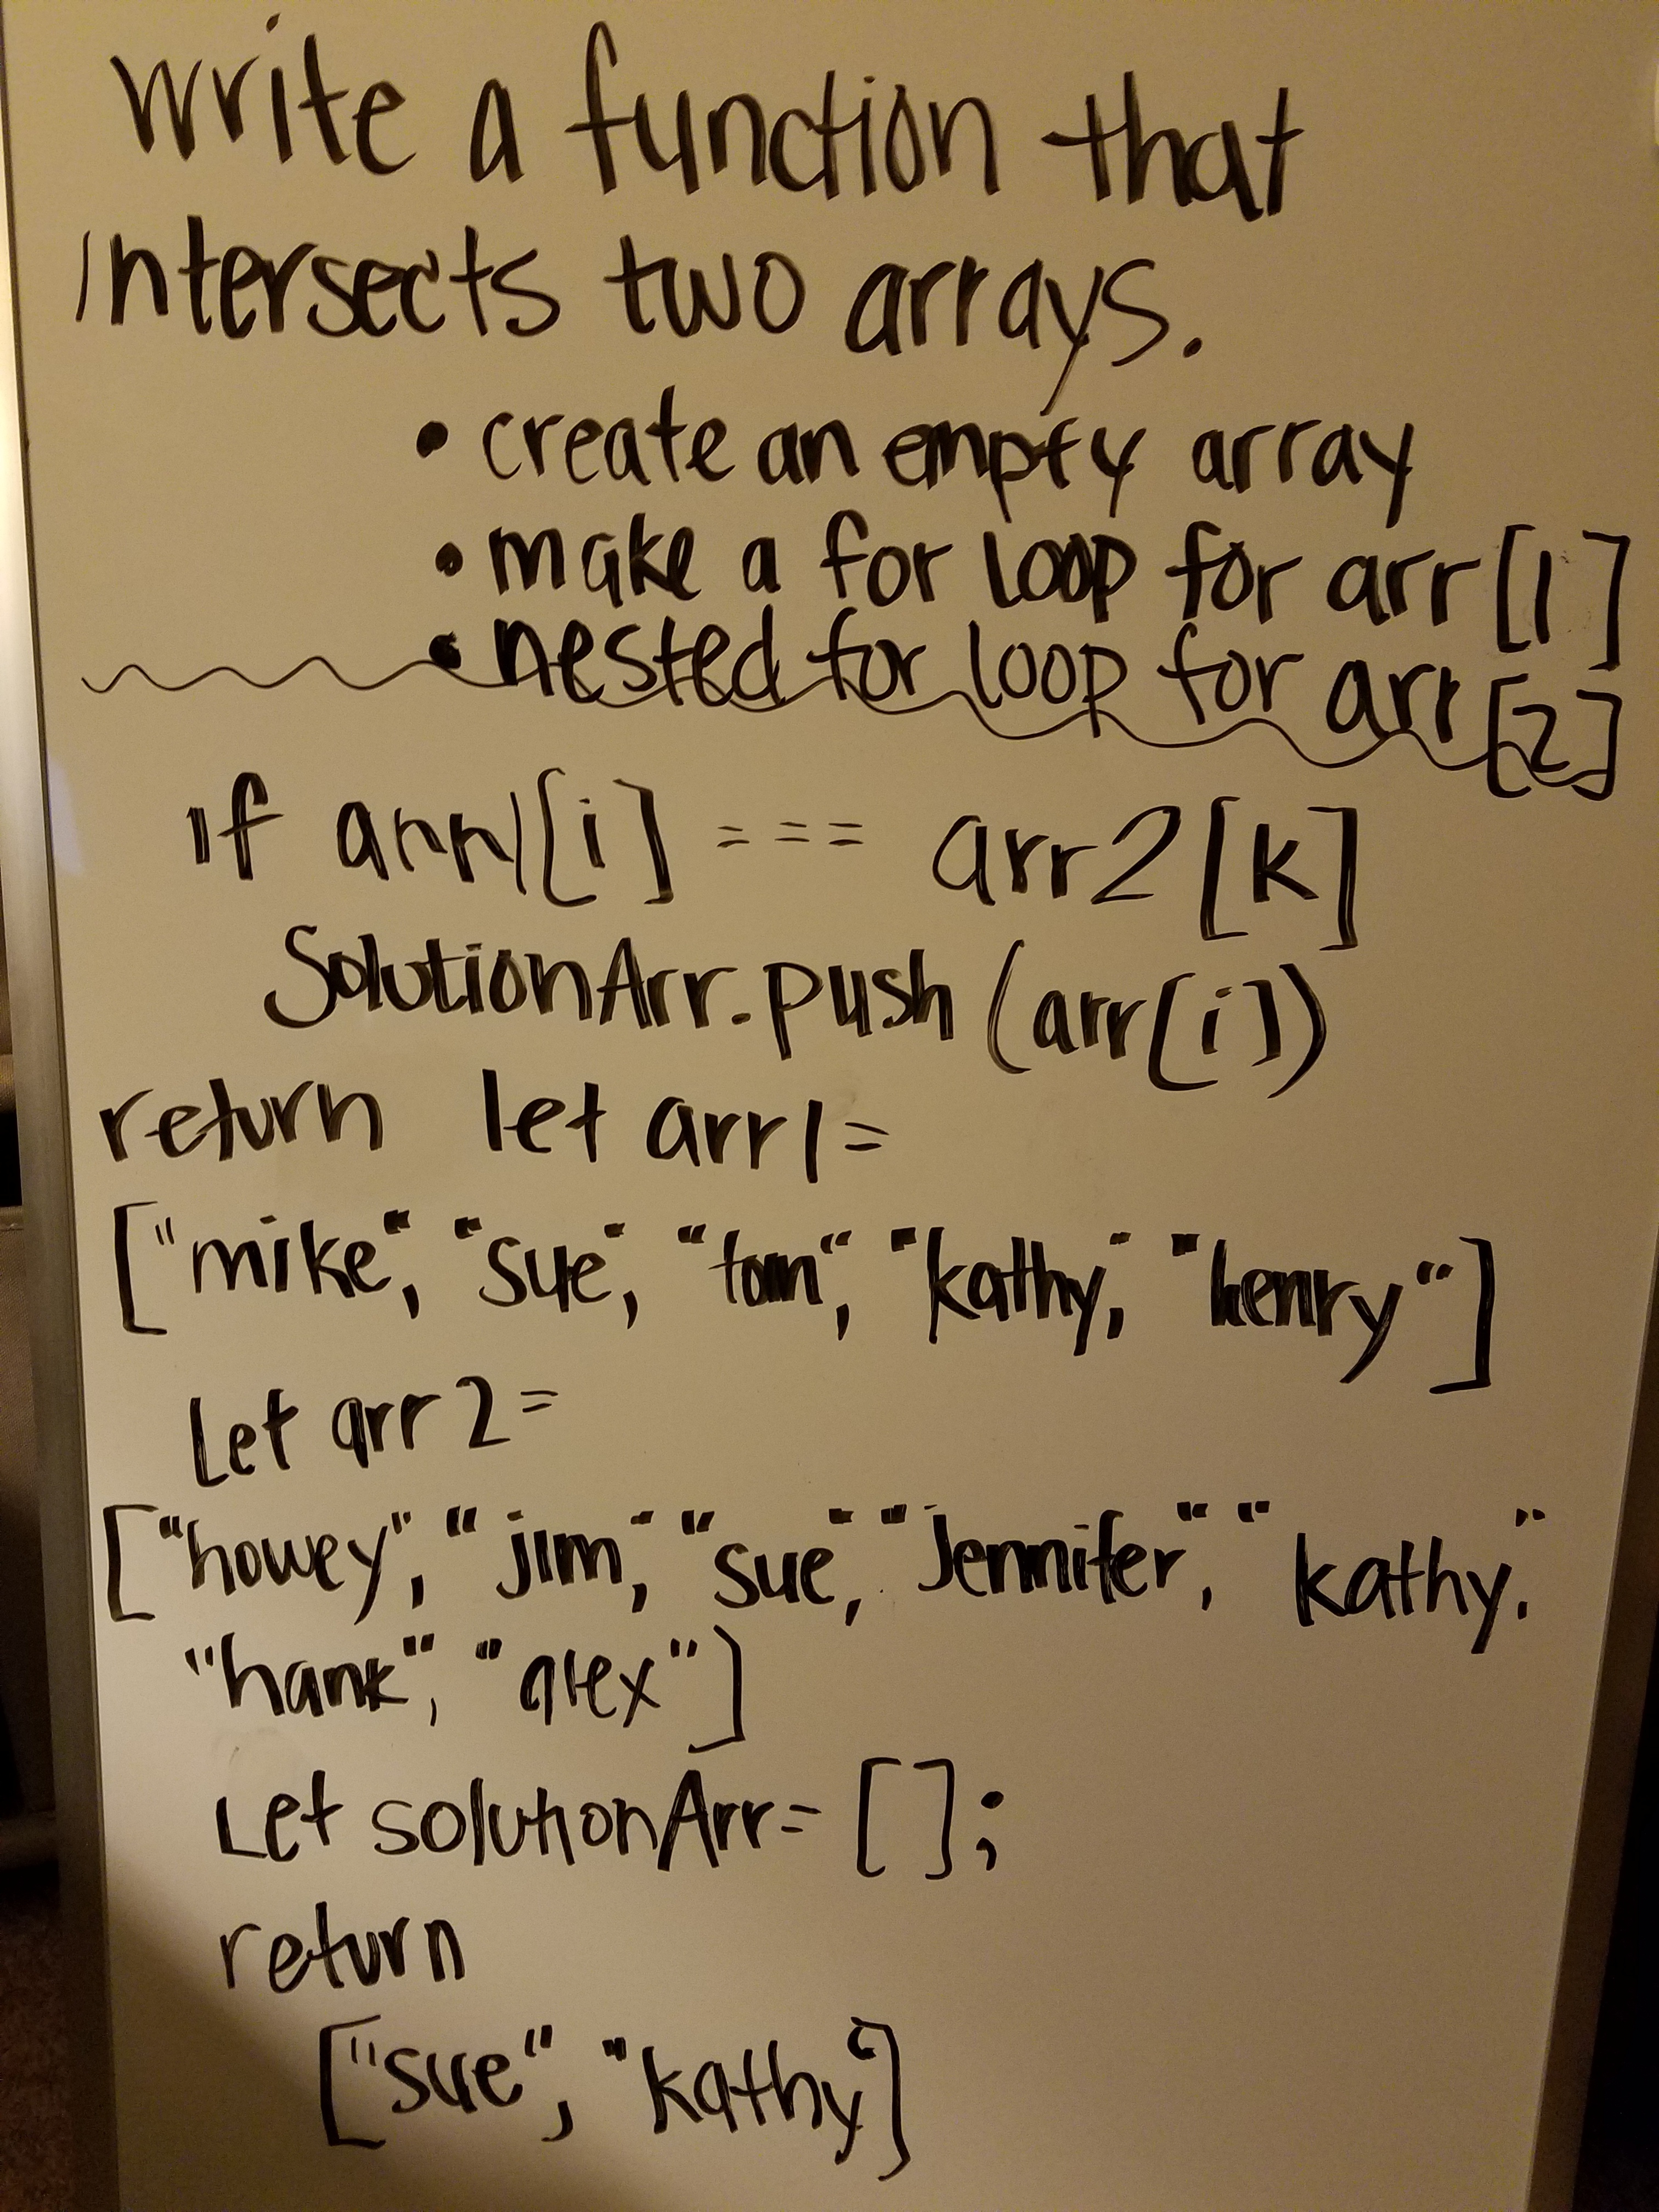 write a function that
intersects two arrays.
• create an empty array
• make a for loop for arr[1]
• nested for loop for arr[2]
if arr1[i] === arr2[k]
SolutionArr.push(arr[i])
return let arr1=
["mike", "sue", "tom", "kathy," "henry"]
Let arr2=
["howey", "jim," "sue," "Jennifer", "kathy."
"hank", "alex"]
Let solutionArr= [];
return
["sue", "kathy"]